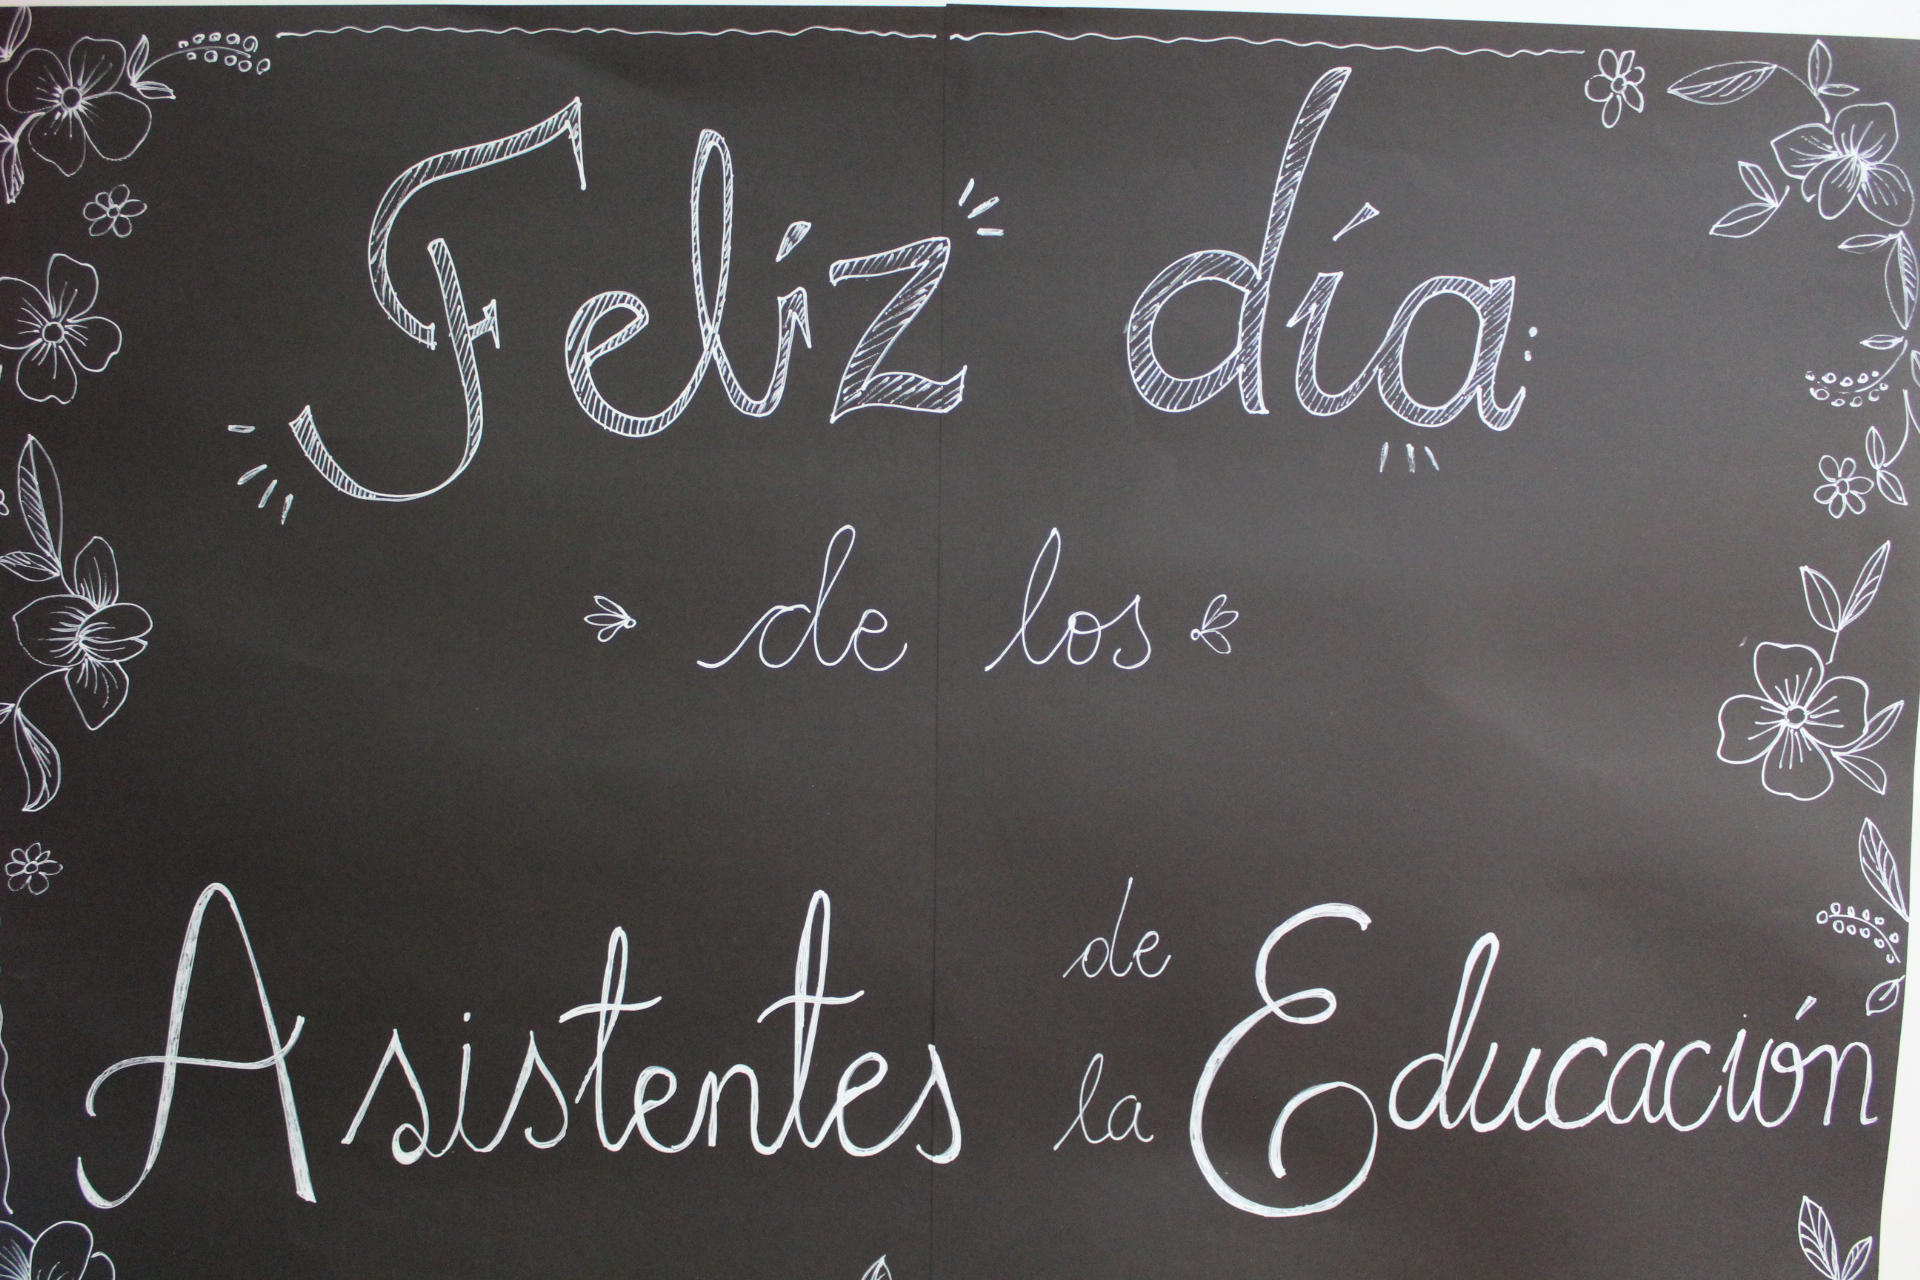 Feliz día
de los
Asistentes de la Educación